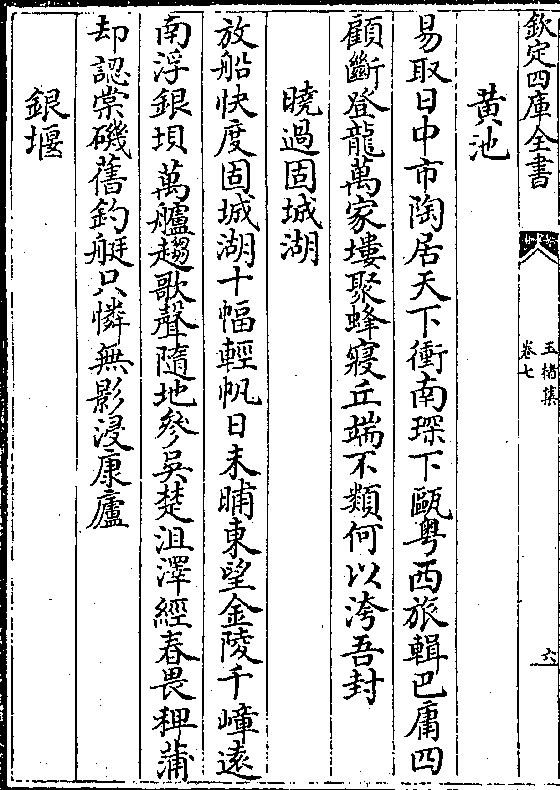 欽定四庫全書
玉楮集
卷七
六
黄池
易取日中市陶居天下衝南琛下甌粤西旅輯巴庸四
顧斷登龍萬家塿聚蜂寢丘端不類何以洿吾封
曉過固城湖
放船快度固城湖十幅輕帆日未晡東望金陵千嶂遠
南浮銀垻萬艫趨歌聲隨地參吳楚沮澤經春畏稗蒲
却認棠磯舊釣艇只憐無影浸康廬
銀堰